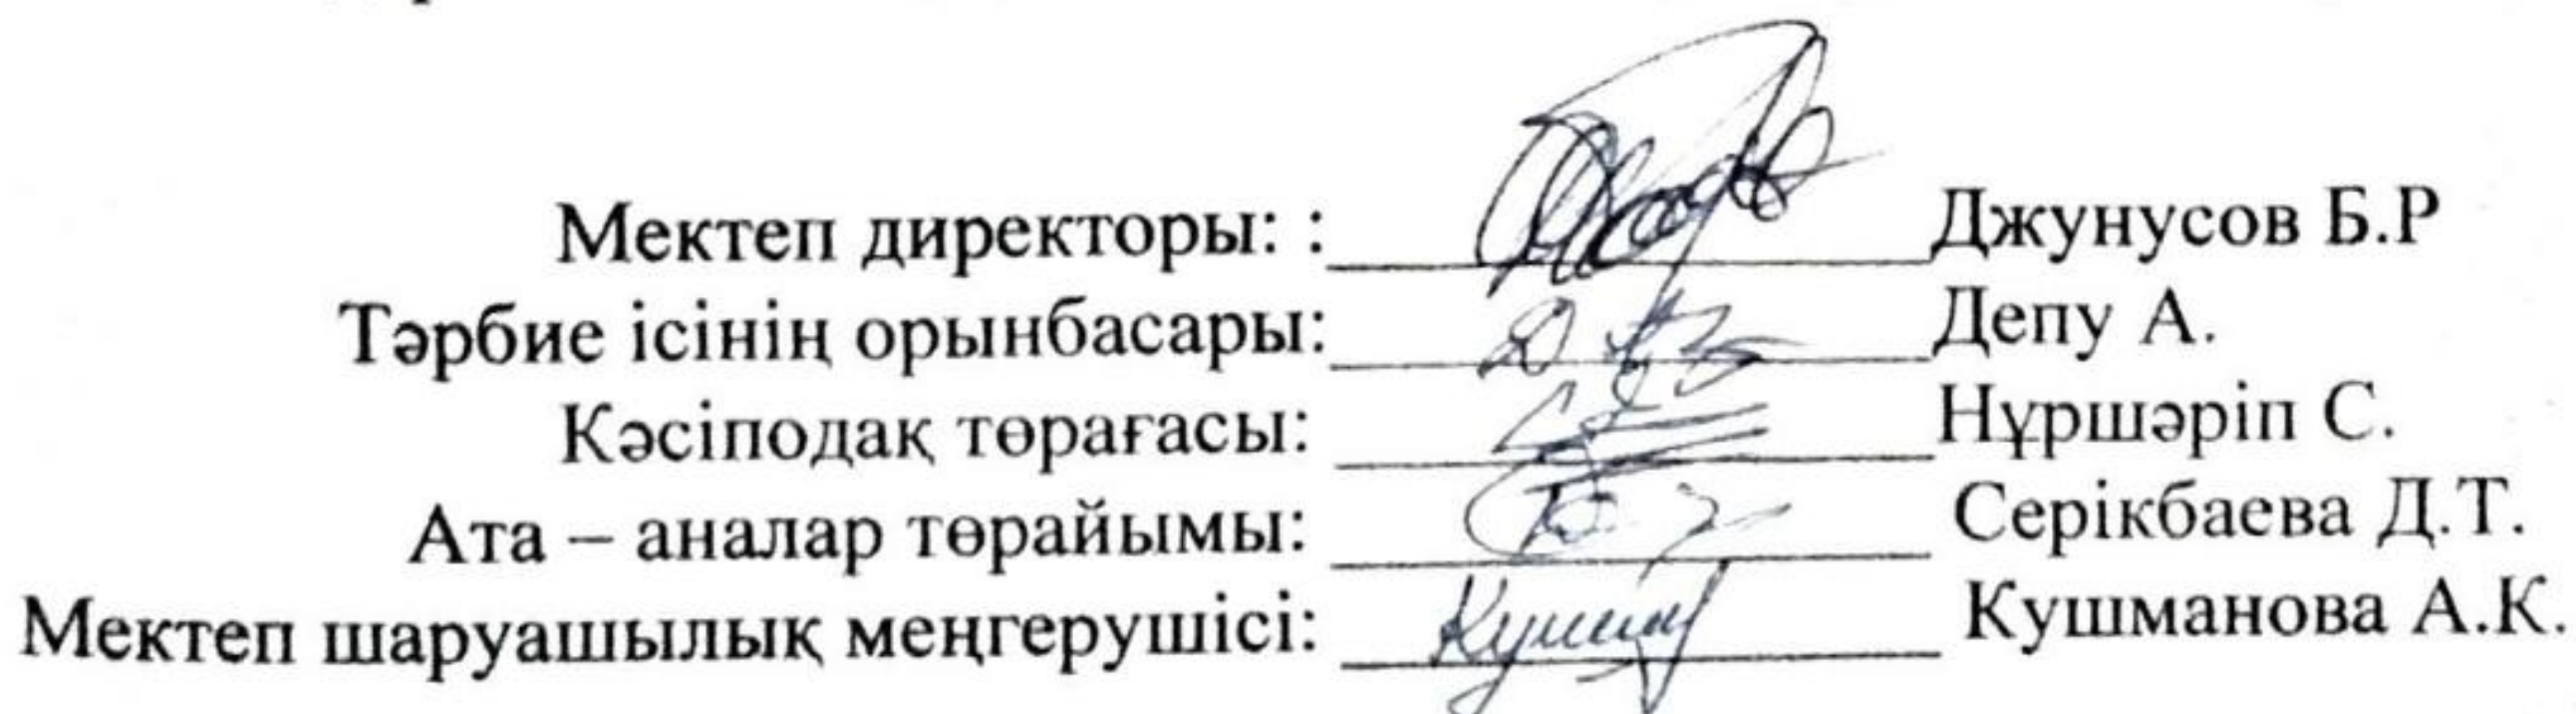 Мектеп директоры: : Джунусов Б.Р
Тәрбие ісінің орынбасары: Депу А.
Кәсіподақ төрағасы: Нұршәріп С.
Ата – аналар төрайымы: Серікбаева Д.Т.
Мектеп шаруашылық меңгерушісі: Кушманова А.К.